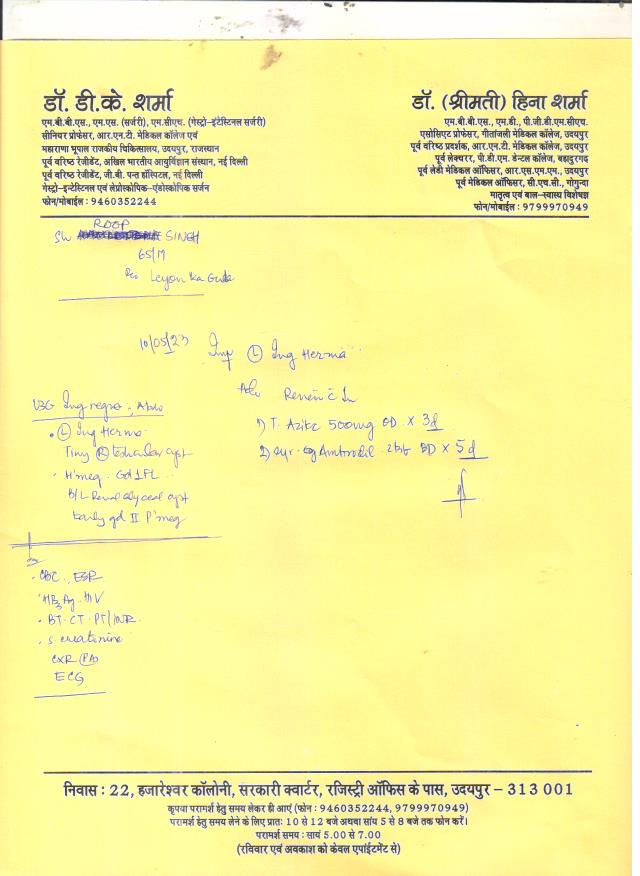 डॉ. डी.के. शर्मा
एम.बी.बी.एस., एम.एस. (सर्जरी), एम.सीएच. (गेस्ट्रो-इंटेस्टिनल सर्जरी)
सीनियर प्रोफेसर, आर.एन.टी. मेडिकल कॉलेज एवं
महाराणा भूपाल राजकीय चिकित्सालय, उदयपुर, राजस्थान
पूर्व वरिष्ठ रेजीडेंट, अखिल भारतीय आयुर्विज्ञान संस्थान, नई दिल्ली
पूर्व वरिष्ठ रेजीडेंट, जी.बी. पन्त हॉस्पिटल, नई दिल्ली
गेस्ट्रो-इन्टेस्टिनल एवं लेप्रोस्कोपिक-एंडोस्कोपिक सर्जन
फोन/मोबाईल : 9460352244
डॉ. (श्रीमती) हिना शर्मा
एम.बी.बी.एस., एम.डी., पी.जी.डी.एम.सीएच.
एसोसिएट प्रोफेसर, गीतांजली मेडिकल कॉलेज, उदयपुर
पूर्व वरिष्ठ प्रदर्शक, आर.एन.टी. मेडिकल कॉलेज, उदयपुर
पूर्व लेक्चरर, पी.डी.एम. डेन्टल कॉलेज, बहादुरगढ़
पूर्व लेडी मेडिकल ऑफिसर, आर.एस.एम.एम., उदयपुर
पूर्व मेडिकल ऑफिसर, सी.एच.सी., गोगुन्दा
मातृत्व एवं बाल-स्वास्थ्य विशेषज्ञ
फोन/मोबाईल : 9799970949
ROOP
Sh SINGH
65/M
R/o Leyon Ka Guda
10/05/23 Imp (L) Ing Hernia
Adv Review c̄ Inv
1) T. Azike 500mg OD x 3d
2) Syr. Ambrodil 2tsf BD x 5d
USG Ing region, Abdo
• (L) Ing Hernia
Tiny (R) testicular cyst
• H'meg. Gd 1 FL
B/L Renal calyceal cyst
Early gd II P'meg
• CBC, ESR
• HBsAg. HIV
• BT. CT. PT/INR
• S. creatinine
CXR (PA)
ECG
निवास : 22, हजारेश्वर कॉलोनी, सरकारी क्वार्टर, रजिस्ट्री ऑफिस के पास, उदयपुर – 313 001
कृपया परामर्श हेतु समय लेकर ही आएं (फोन : 9460352244, 9799970949)
परामर्श हेतु समय लेने के लिए प्रातः 10 से 12 बजे अथवा सांय 5 से 8 बजे तक फोन करें।
परामर्श समय : सायं 5.00 से 7.00
(रविवार एवं अवकाश को केवल एपॉईंटमेंट से)